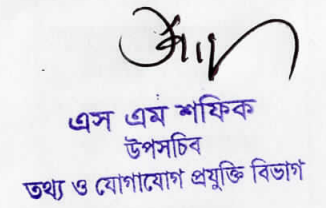 এস এম শফিক
উপসচিব
তথ্য ও যোগাযোগ প্রযুক্তি বিভাগ